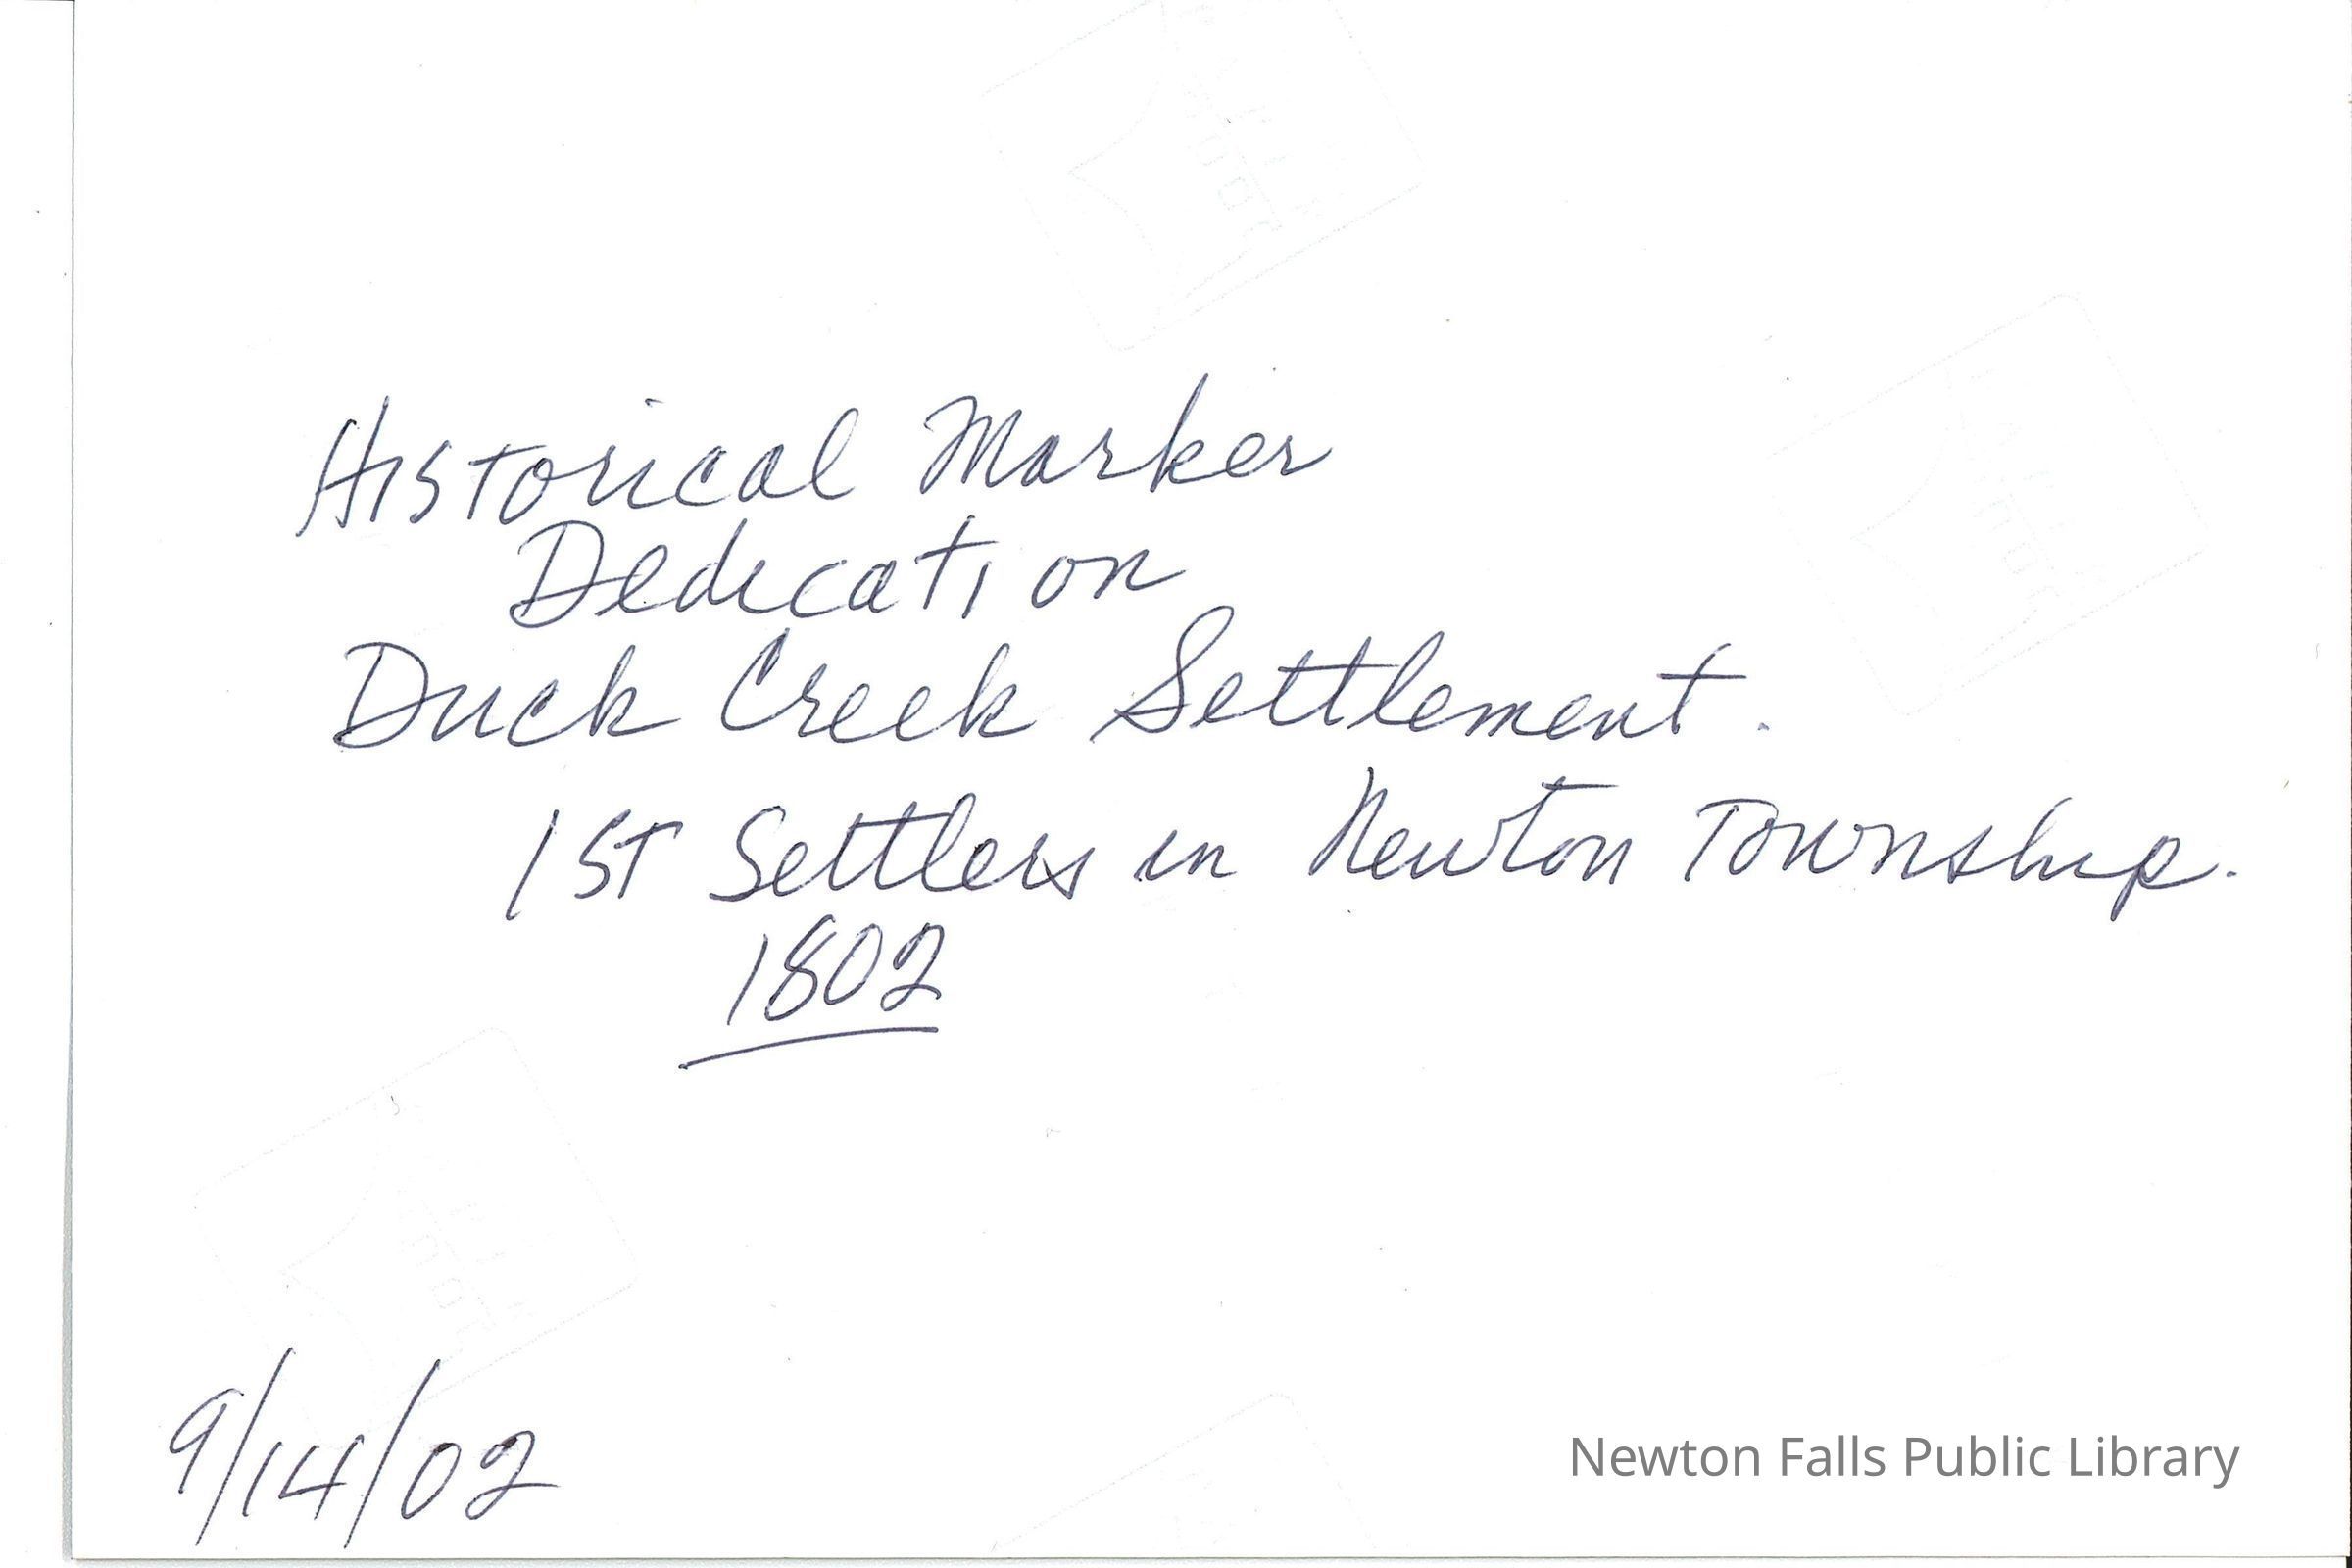 Historical Marker
Dedication
Duck Creek Settlement.
1ST Settlers in Newton Township.
1802
9/14/02
Newton Falls Public Library